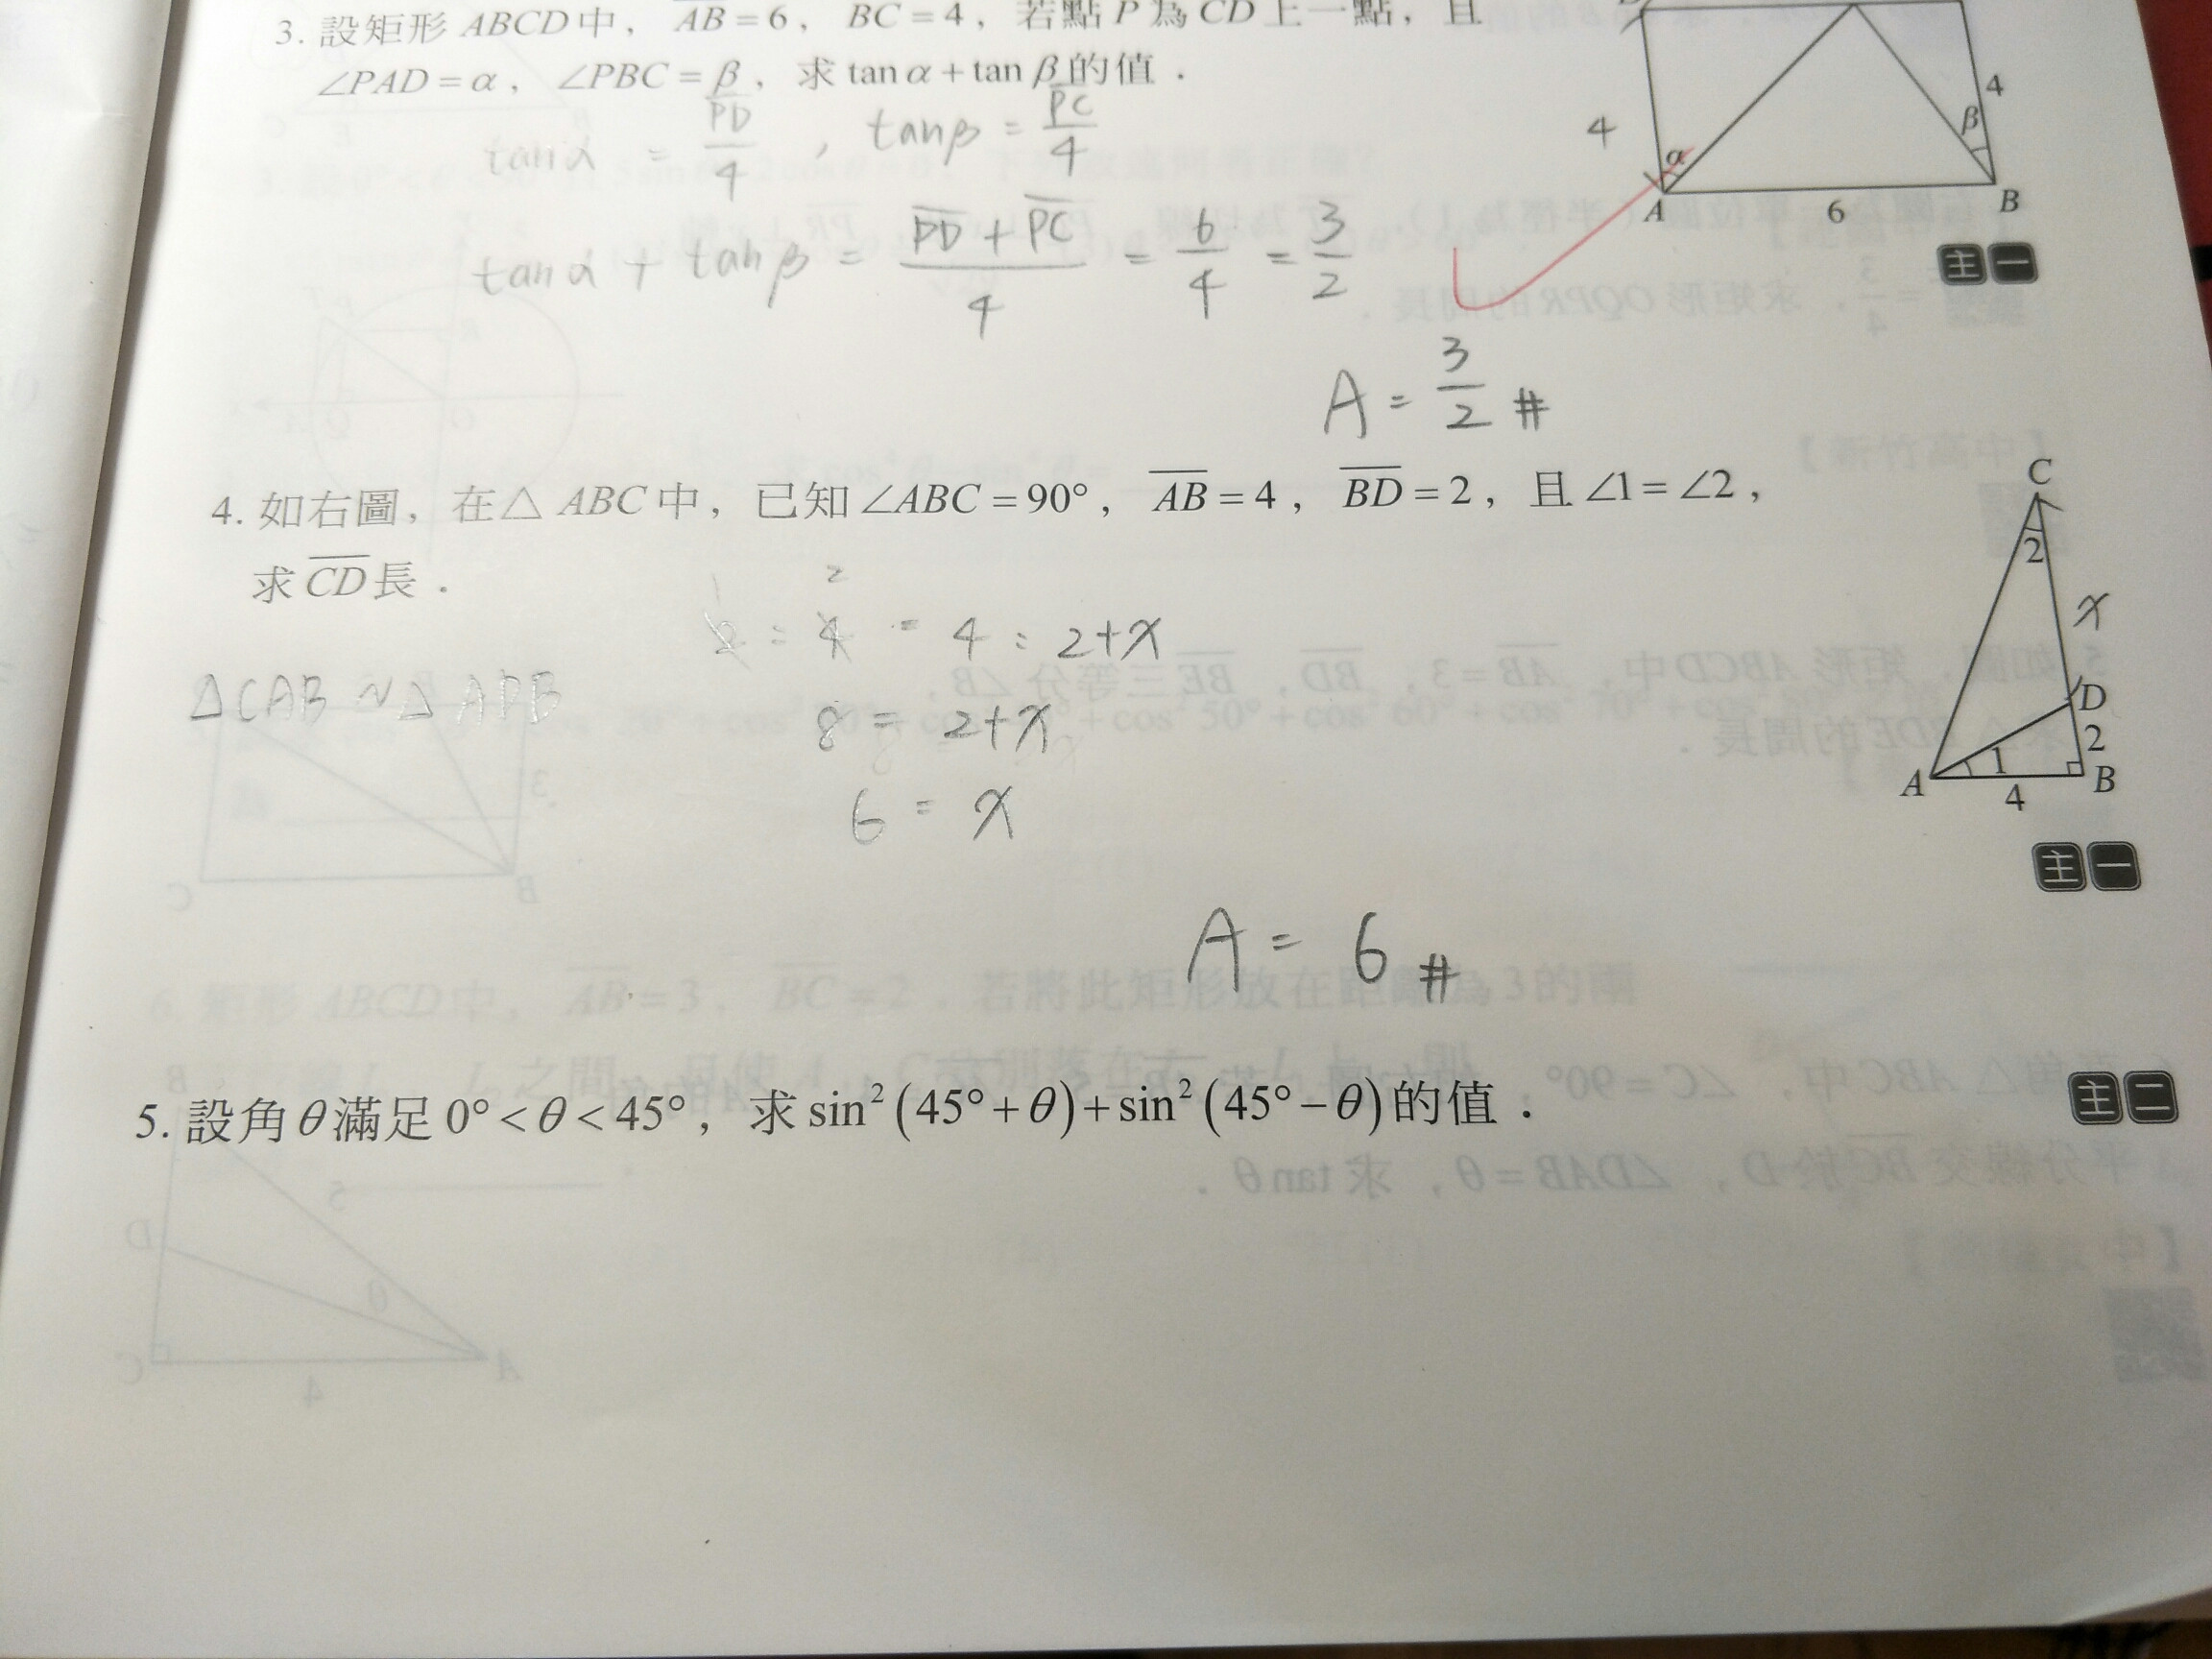 3. 設矩形 ABCD 中，AB = 6，BC = 4，若點 P 為 CD 上一點，且
∠PAD = α，∠PBC = β，求 tan α + tan β 的值．
tan α = PD/4 , tan β = PC/4
tan α + tan β = (PD + PC)/4 = 6/4 = 3/2
A = 3/2 #
4
α
β
4
A
6
B
主 一
4. 如右圖，在△ ABC 中，已知 ∠ABC = 90°，AB = 4，BD = 2，且 ∠1 = ∠2，
求 CD 長．
1 2
2 : 4 = 4 : 2+x
△CAB ~ △ADB
8 = 2+x
6 = x
A = 6 #
C
2
x
D
2
1
A
B
4
主 一
5. 設角 θ 滿足 0° < θ < 45°，求 sin² (45° + θ) + sin² (45° − θ) 的值．
主 二